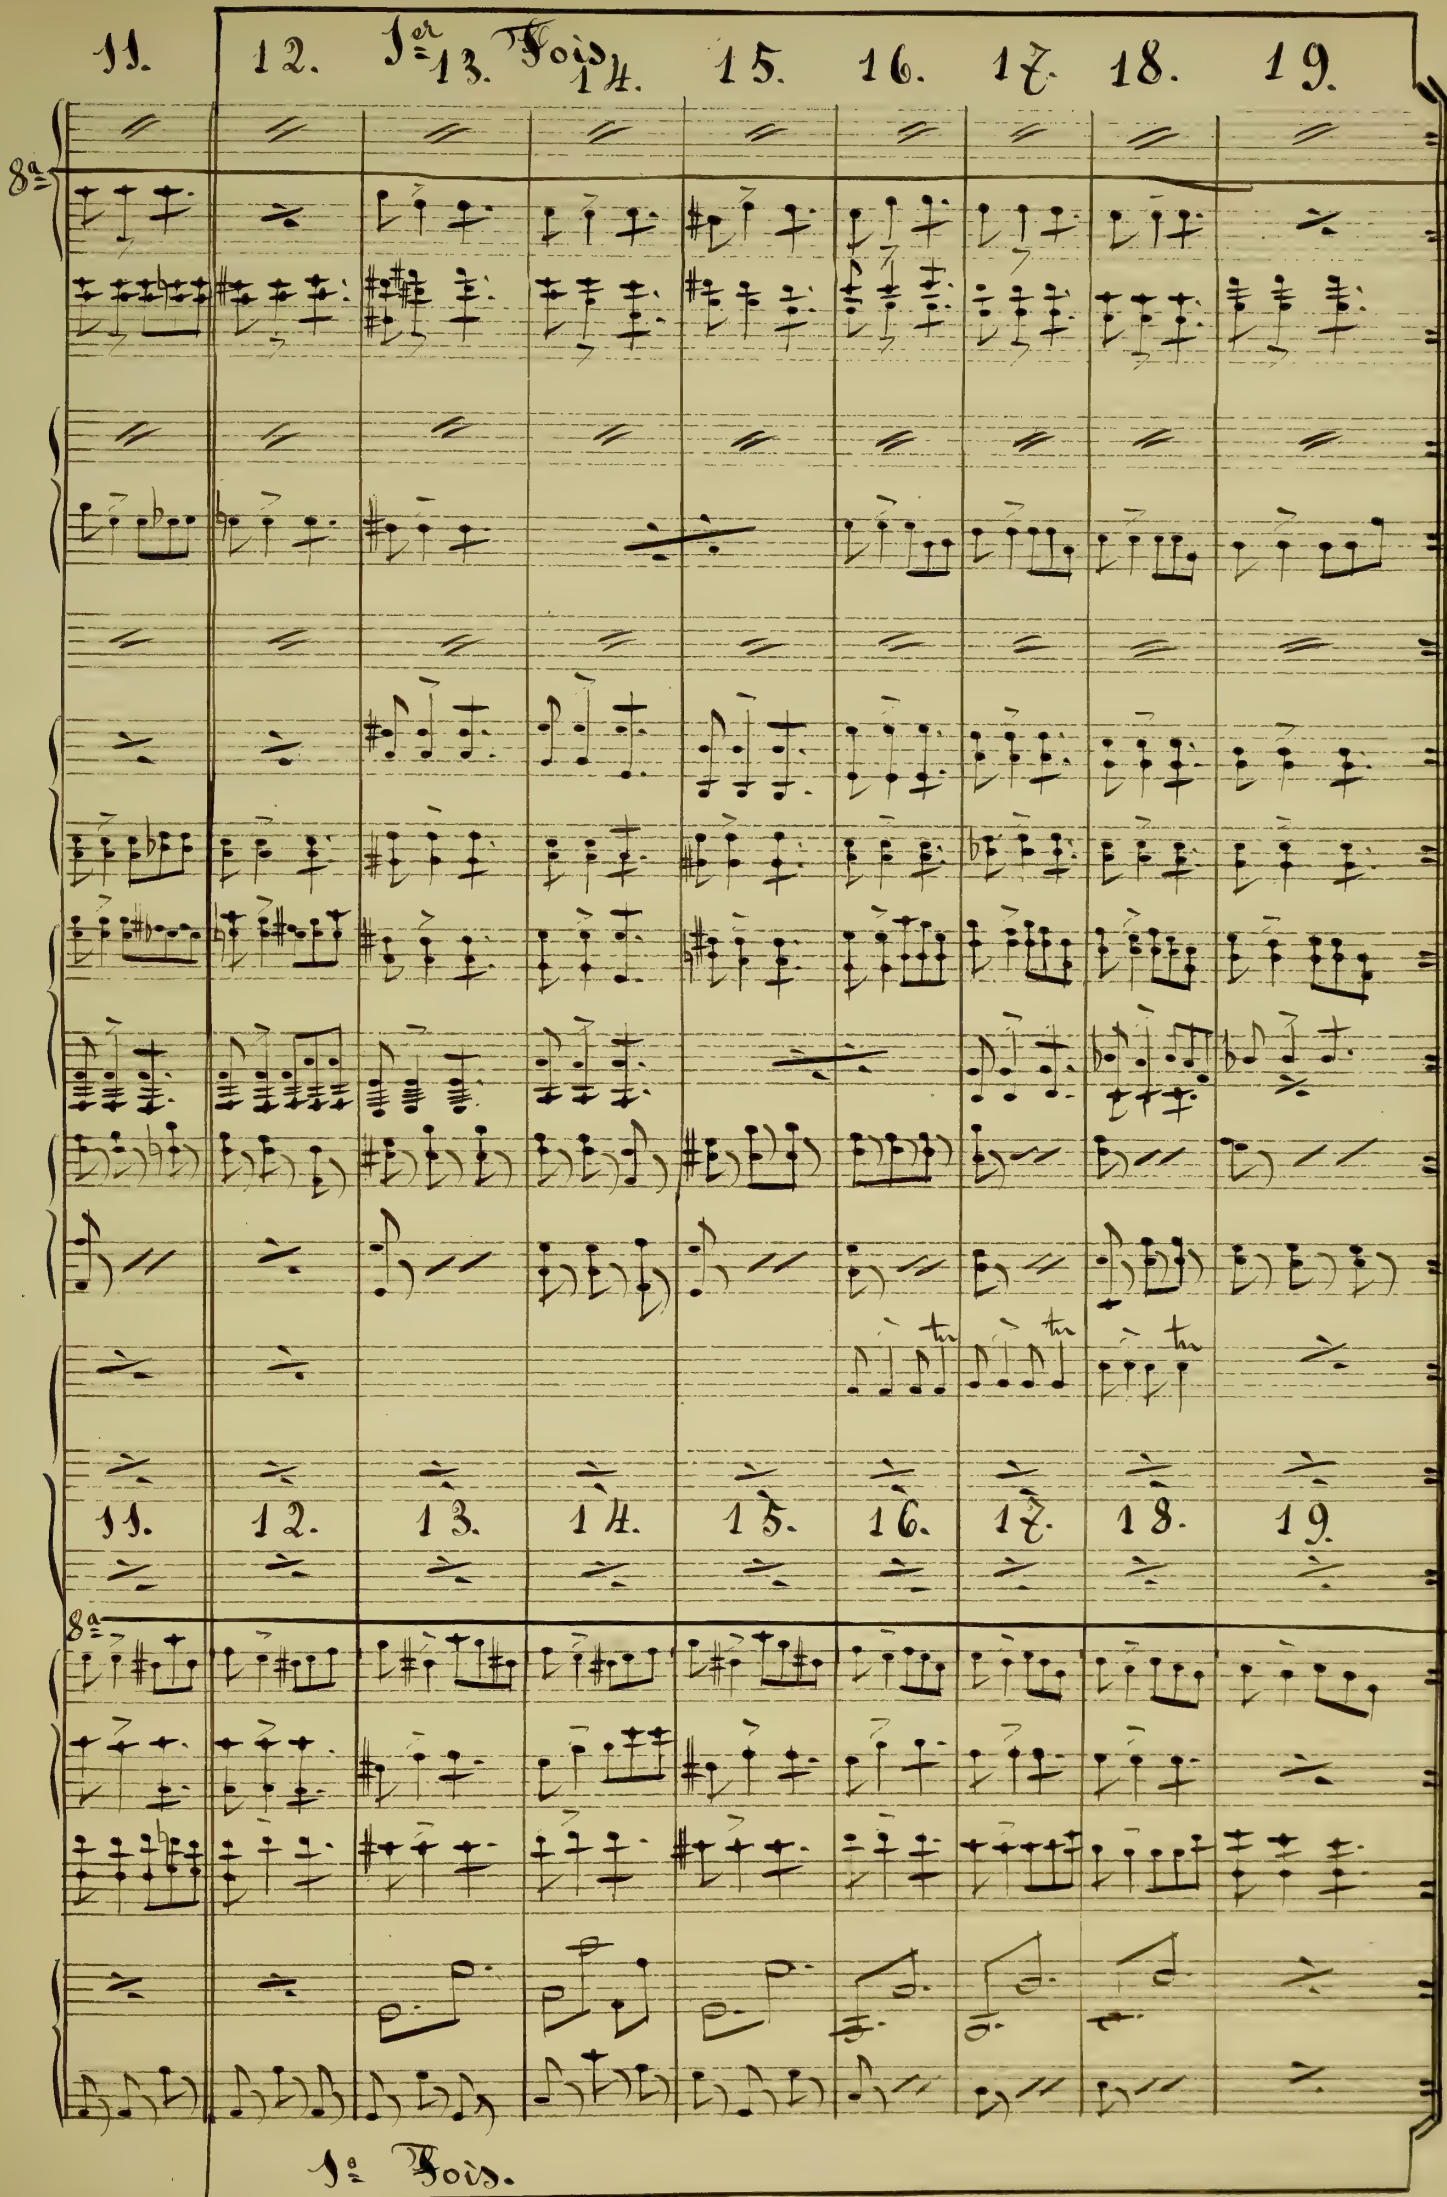 1er Fois
11. 12. 13. 14. 15. 16. 17. 18. 19.
8a
tr tr tr
11. 12. 13. 14. 15. 16. 17. 18. 19.
8a
1e Fois.